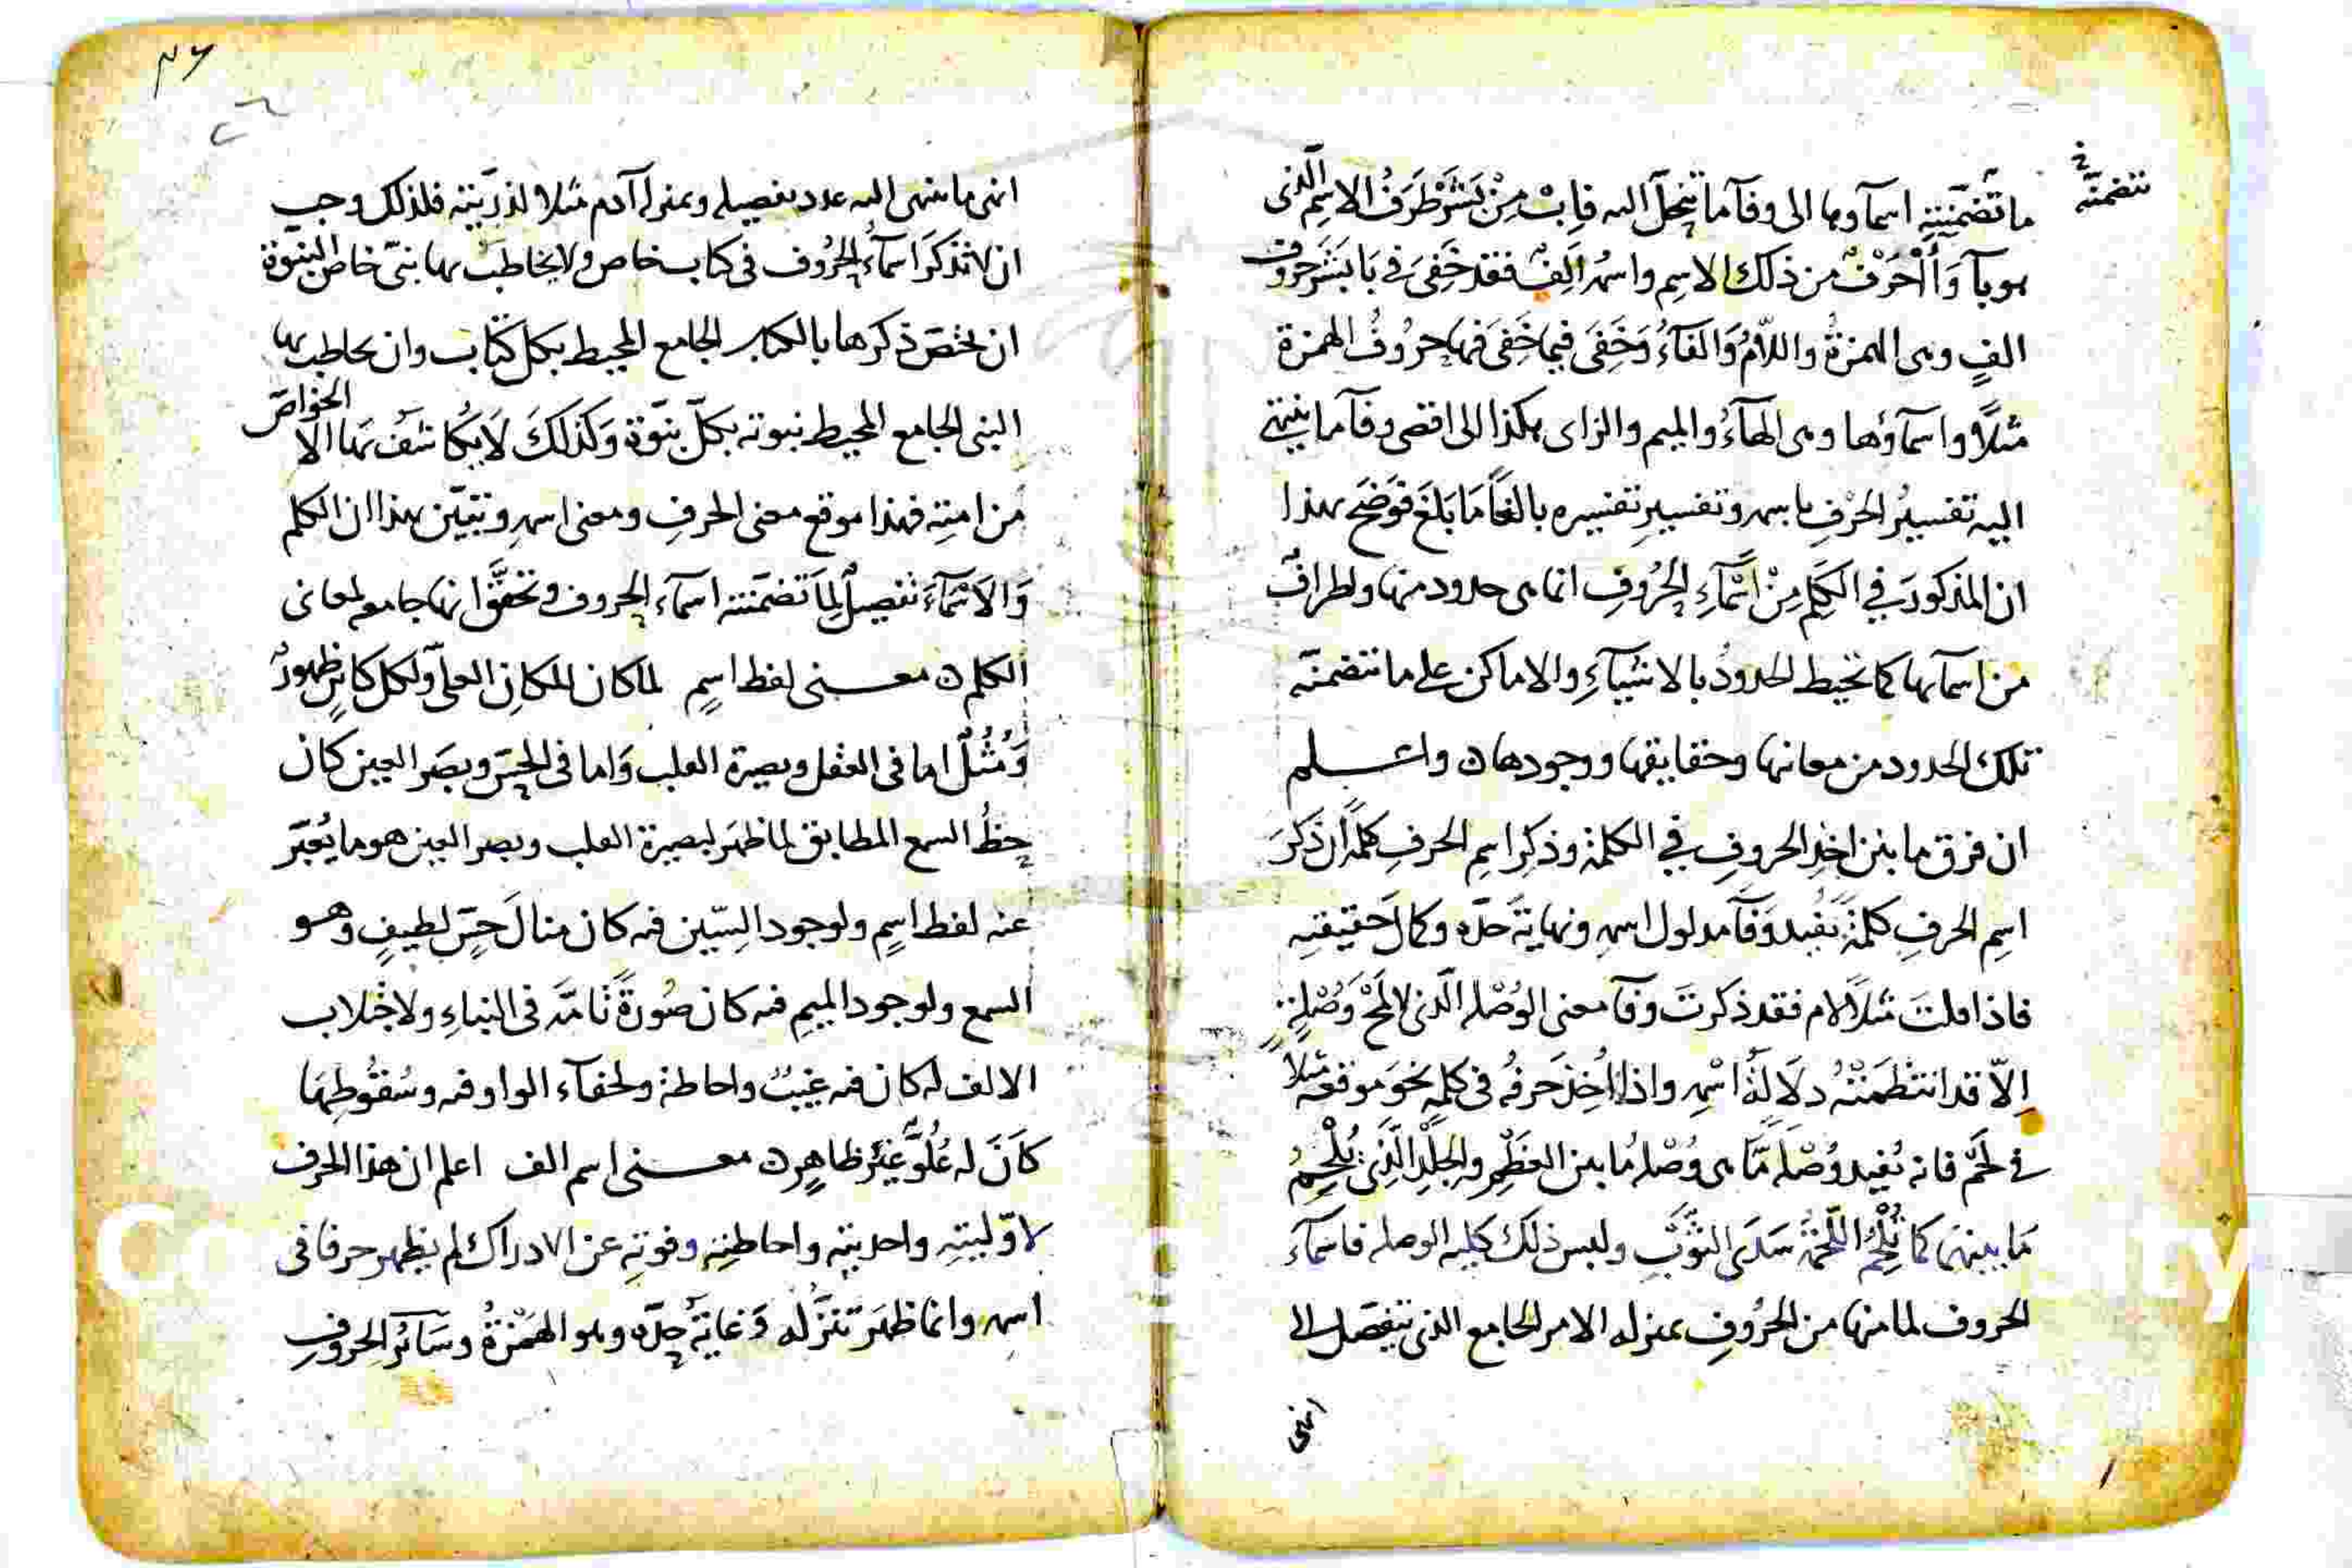 تتضمنه
ما تضمنته اسماوها الى وفآ ما تنحل اليه فإن مِنْ بَشَرْ طَرَفُ الاسم الّذى
هو بآ وَأَلْحَرْفُ من ذلك الاسِم واسمه اَلِفْ فقد خَفِىَ فى بَا بَشَر حروف
الفٍ وهى الهمزةُ واللاّمُ وَالفَآءُ وَخَفِىَ فيما خَفِىَ فيها حروفُ الهمزة
مثلاً واسمآؤها وهى الهآءُ والميم والزاى هكذا الى اقصى وفآ ما ينتهى
اليه تفسيرُ الحرْفِ باسمه وتفسيرِ تفسيره بالغًا مَا بَلَغَ فوَضَحَ بهذا
ان المذكورَ فى الكَلِم مِنْ اَسْمَآءِ الحُرُوفِ انما هى حدود منها واطراف
من اسمآئها كما تحيط الحدودُ بالاشيآءِ والاماكن على ما تتضمنه
تلك الحدود من معانيها وحقايقها ووجودها ه واعلم
ان فرق ما بين اخذ الحروفِ فى الكلمة وذكِر اسِم الحرفِ كلمةً ان ذكَرَ
اسِم الحرفِ كلمةً يُفيد وَفَآ مدلول اسمه ونهايةَ حدّه وكمالَ حقيقته
فاذا قلتَ مثلاً لام فقد ذكرتَ وفآ معنى الوُصْله الّذى لا لمَحْ وُصْلةٍ
اِلاّ قد انتظمَتْهُ دلَالةُ اسْمِه واذا اُخِذ حَرفُه فى كلمةٍ نحوَ موقعه مثلاً
فى لحَمْ فانه يُفيد وُصْلَةً مَّا هى وُصْلة ما بين العَظْمِ والجِلْدِ الّذِى يُلْحِمُ
مَا بينهما كما تُلْحِمُ اللُّحْمَةُ سَدَى الثوْبِ وليس ذلك كلية الوصله فاسمآء
الحروف لما منها من الحُرُوفِ بمنزله الامر الجامع الذى يتفصّل الى
انهى
انهى ما ينتهى اليه عدد تفصيله وبمنزله آدم مثلا لذرّيته فلذلك وجب
ان لا تذكَرَ اسمآءُ الحُرُوف فى كتاب خاص ولا يخاطبُ بها نبىّ خاصُ النبوّة
ان يختصّ ذكرها بالكتاب الجامع المحيط بكل كتاب وان يخاطب بها
النبى الجامع المحيط نبوته بكلّ نبوّة وَكذلكَ لَا يُكاشَفُ بهَا الاّ الخواصّ
من امته فهذا موقع معنى الحرفِ ومعنى اسمهِ وتبيّن بهذا ان الكلم
وَالاَسْمآءَ تفصِيلٌ لِمَا تضمّنته اسمآءَ الحروف وتحقَّق انها جامعه لمعانى
الكلم ه معنى لفظ اسِمٍ لما كان للمكانِ العلىّ ولكل كائنٍ ظهورٌ
وَمُثُلٌ اما فى العقل وبصيرة القلب وَاما فى الحِسّ وبصَر العين كان
حظُّ السمع المطابق لما ظهَر لبصيرة القلب وبصر العين هو ما يُعبّر
عنه لفظ اسِمٍ ولوجود السّين فيه كان منالَ حِسّ لطيفٍ وهو
السمع ولوجود الميمِ فيه كان صُورةً تامّةً فى النباءِ ولاجتلاب
الالف له كان فيه غيبٌ واحاطة ولخفآء الواو فيه وسُقوُطِهَا
كاَنَ له عُلُوٌّ غيْرُ ظاهرٍ ه معنى اسم الف اعلم ان هذا الحرف
لاوّليّتِه واحديته واحاطتِه وفوتِه عن الادراك لم يظهر حرفا فى
اسمه وانما ظهَر تَنَزُّله وَغايَةُ حدّه وهو الهَمْزةُ وسَآئرُ الحروفِ